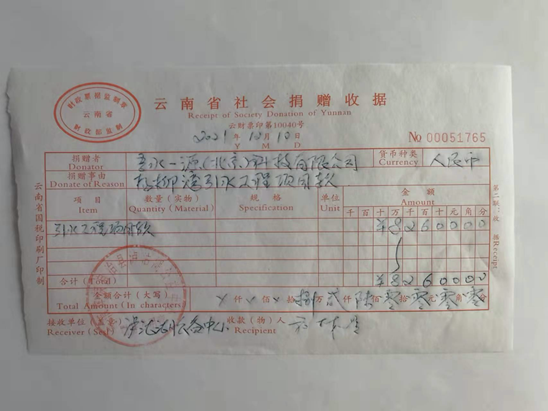 云南省社会捐赠收据
Receipt of Society Donation of Yunnan
云财票印第10040号
云南省
财政部监制
2021年10月10日
Y M D
No 00051765
捐赠者
Donator
一源(北京)科技有限公司
货币种类
Currency
人民币
捐赠事由
Donate of Reason
引水工程项目款
项目
Item
数量(实物)
Quantity(Material)
规格
Specification
单位
Unit
金额
Amount
千百十万千百十元角分
引水工程项目款
¥8260000
合计(Total)
¥8260000
金额合计(大写)
Total Amount(In characters)
仟佰拾捌万贰仟陆佰零拾零元零角零分
接收单位(盖章)
Receiver(Seal)
服务中心
收款(物)人
Recipient
云南省国税印刷厂印制
第二联:收据 Receipt